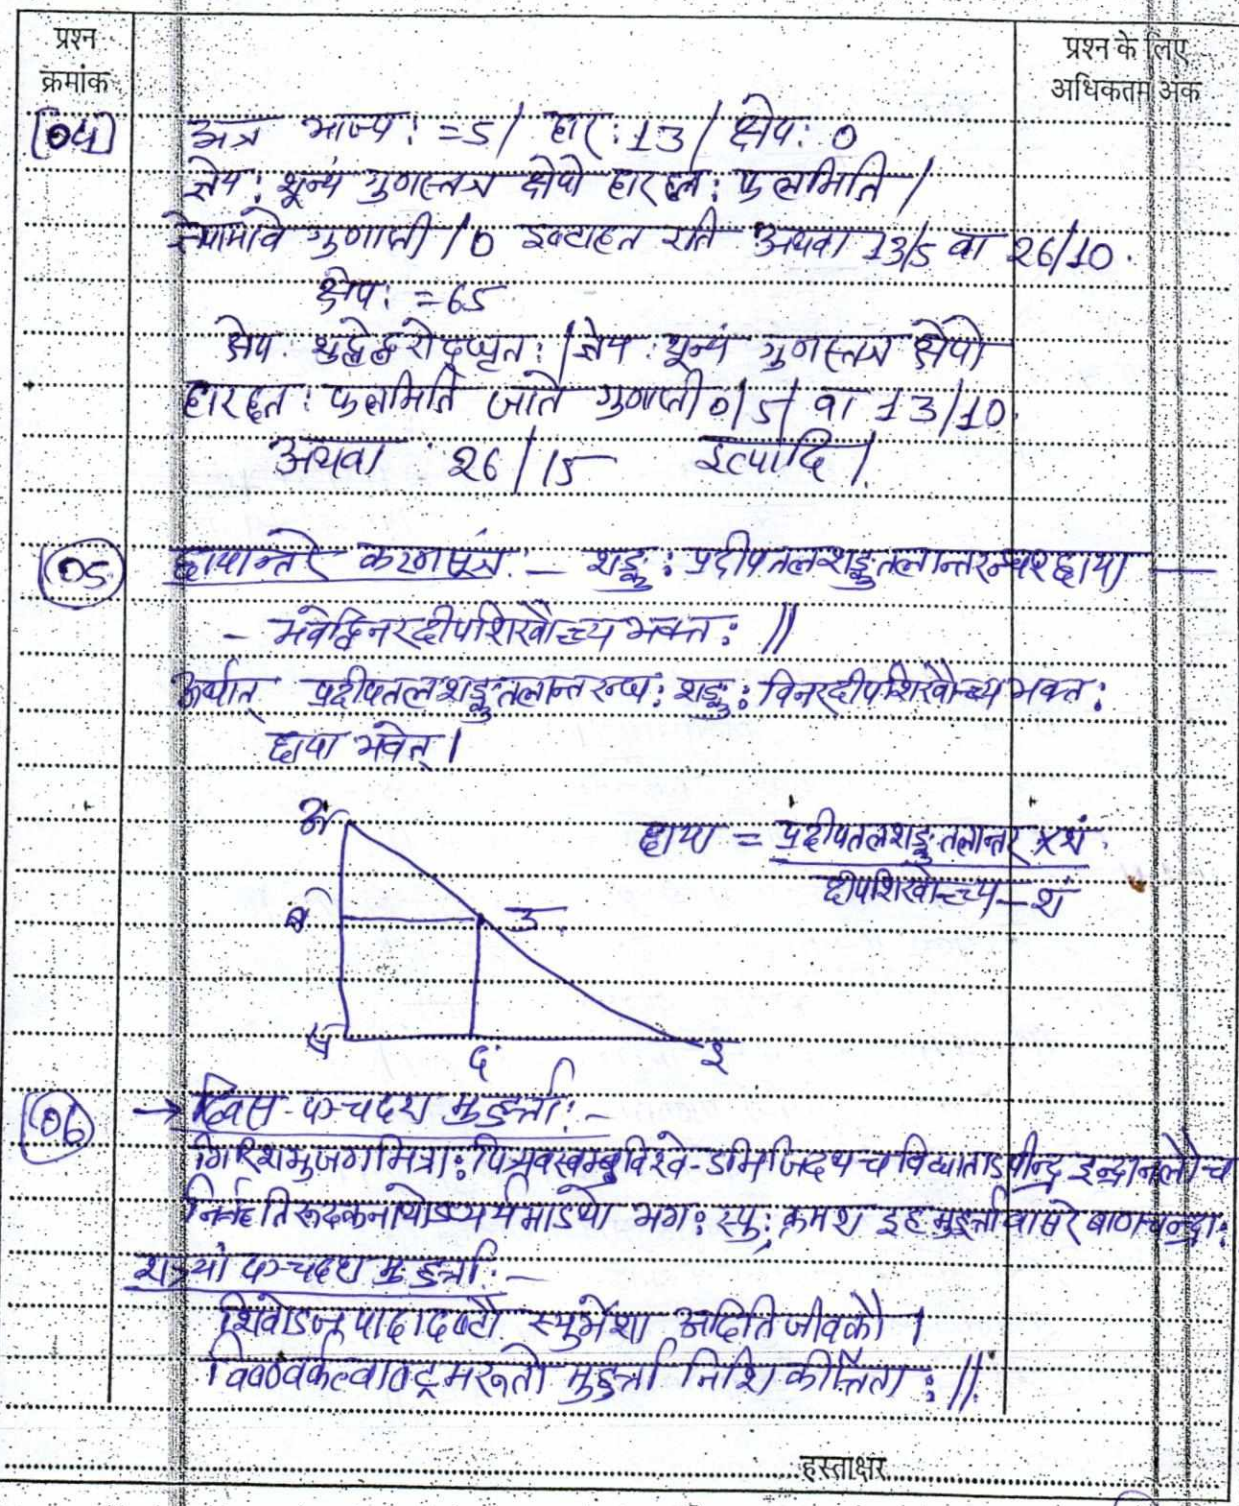 प्रश्न
क्रमांक
प्रश्न के लिए
अधिकतम अंक
[04] अत्र भाज्य: =5/ हार: 13/ क्षेप: 0
ज्ञेय: शून्यं गुणस्तत्र क्षेपो हारहृत: फलमिति /
गुणाप्ती /0 इष्टाहत इति अथवा 13/5 वा 26/10.
क्षेप: =65
क्षेप: शुद्धेद्धरोद्धृत: / ज्ञेय: शून्यं गुणस्तत्र क्षेपो
हारहृत: फलमिति जाते गुणाप्ती 0/5/ वा 13/10.
अथवा 26/15 इत्यादि/
(05) छायान्तरे करणसूत्रं:- शङ्कु: प्रदीपतलशङ्कुतलान्तरन्घश्छाया —
- भवेद्विनरदीपशिखौच्च्य भक्त: //
अर्थात् प्रदीपतलशङ्कुतलान्तरन्घ: शङ्कु: विनरदीपशिखौच्च्य भक्त:
छाया भवेत् ।
अ
छाया = प्रदीपतलशङ्कुतलान्तर × शं
दीपशिखौच्च्य - शं
ब उ
स द इ
(06) → दिवस पञ्चदश मुहूर्त्ता:-
गिरिशभुजगमित्रा: पित्र्यवस्वम्बुविश्वे-ऽभिजिदथ च विधाताऽपीन्द्र इन्द्रानलौ च
निर्ऋतिरुदकनाथोऽप्यर्यमाऽथो भग: स्यु: क्रमश इह मुहूर्त्ता वासरे बाणचन्द्रा:
रात्र्यां पञ्चदश मुहूर्त्ता:-
शिवोऽजपादादष्टौ स्युर्भेशा अदिति जीवकौ ।
विष्ण्वर्कत्वाष्ट्रमरुतो मुहूर्त्ता निशि कीर्त्तिता: //
हस्ताक्षर